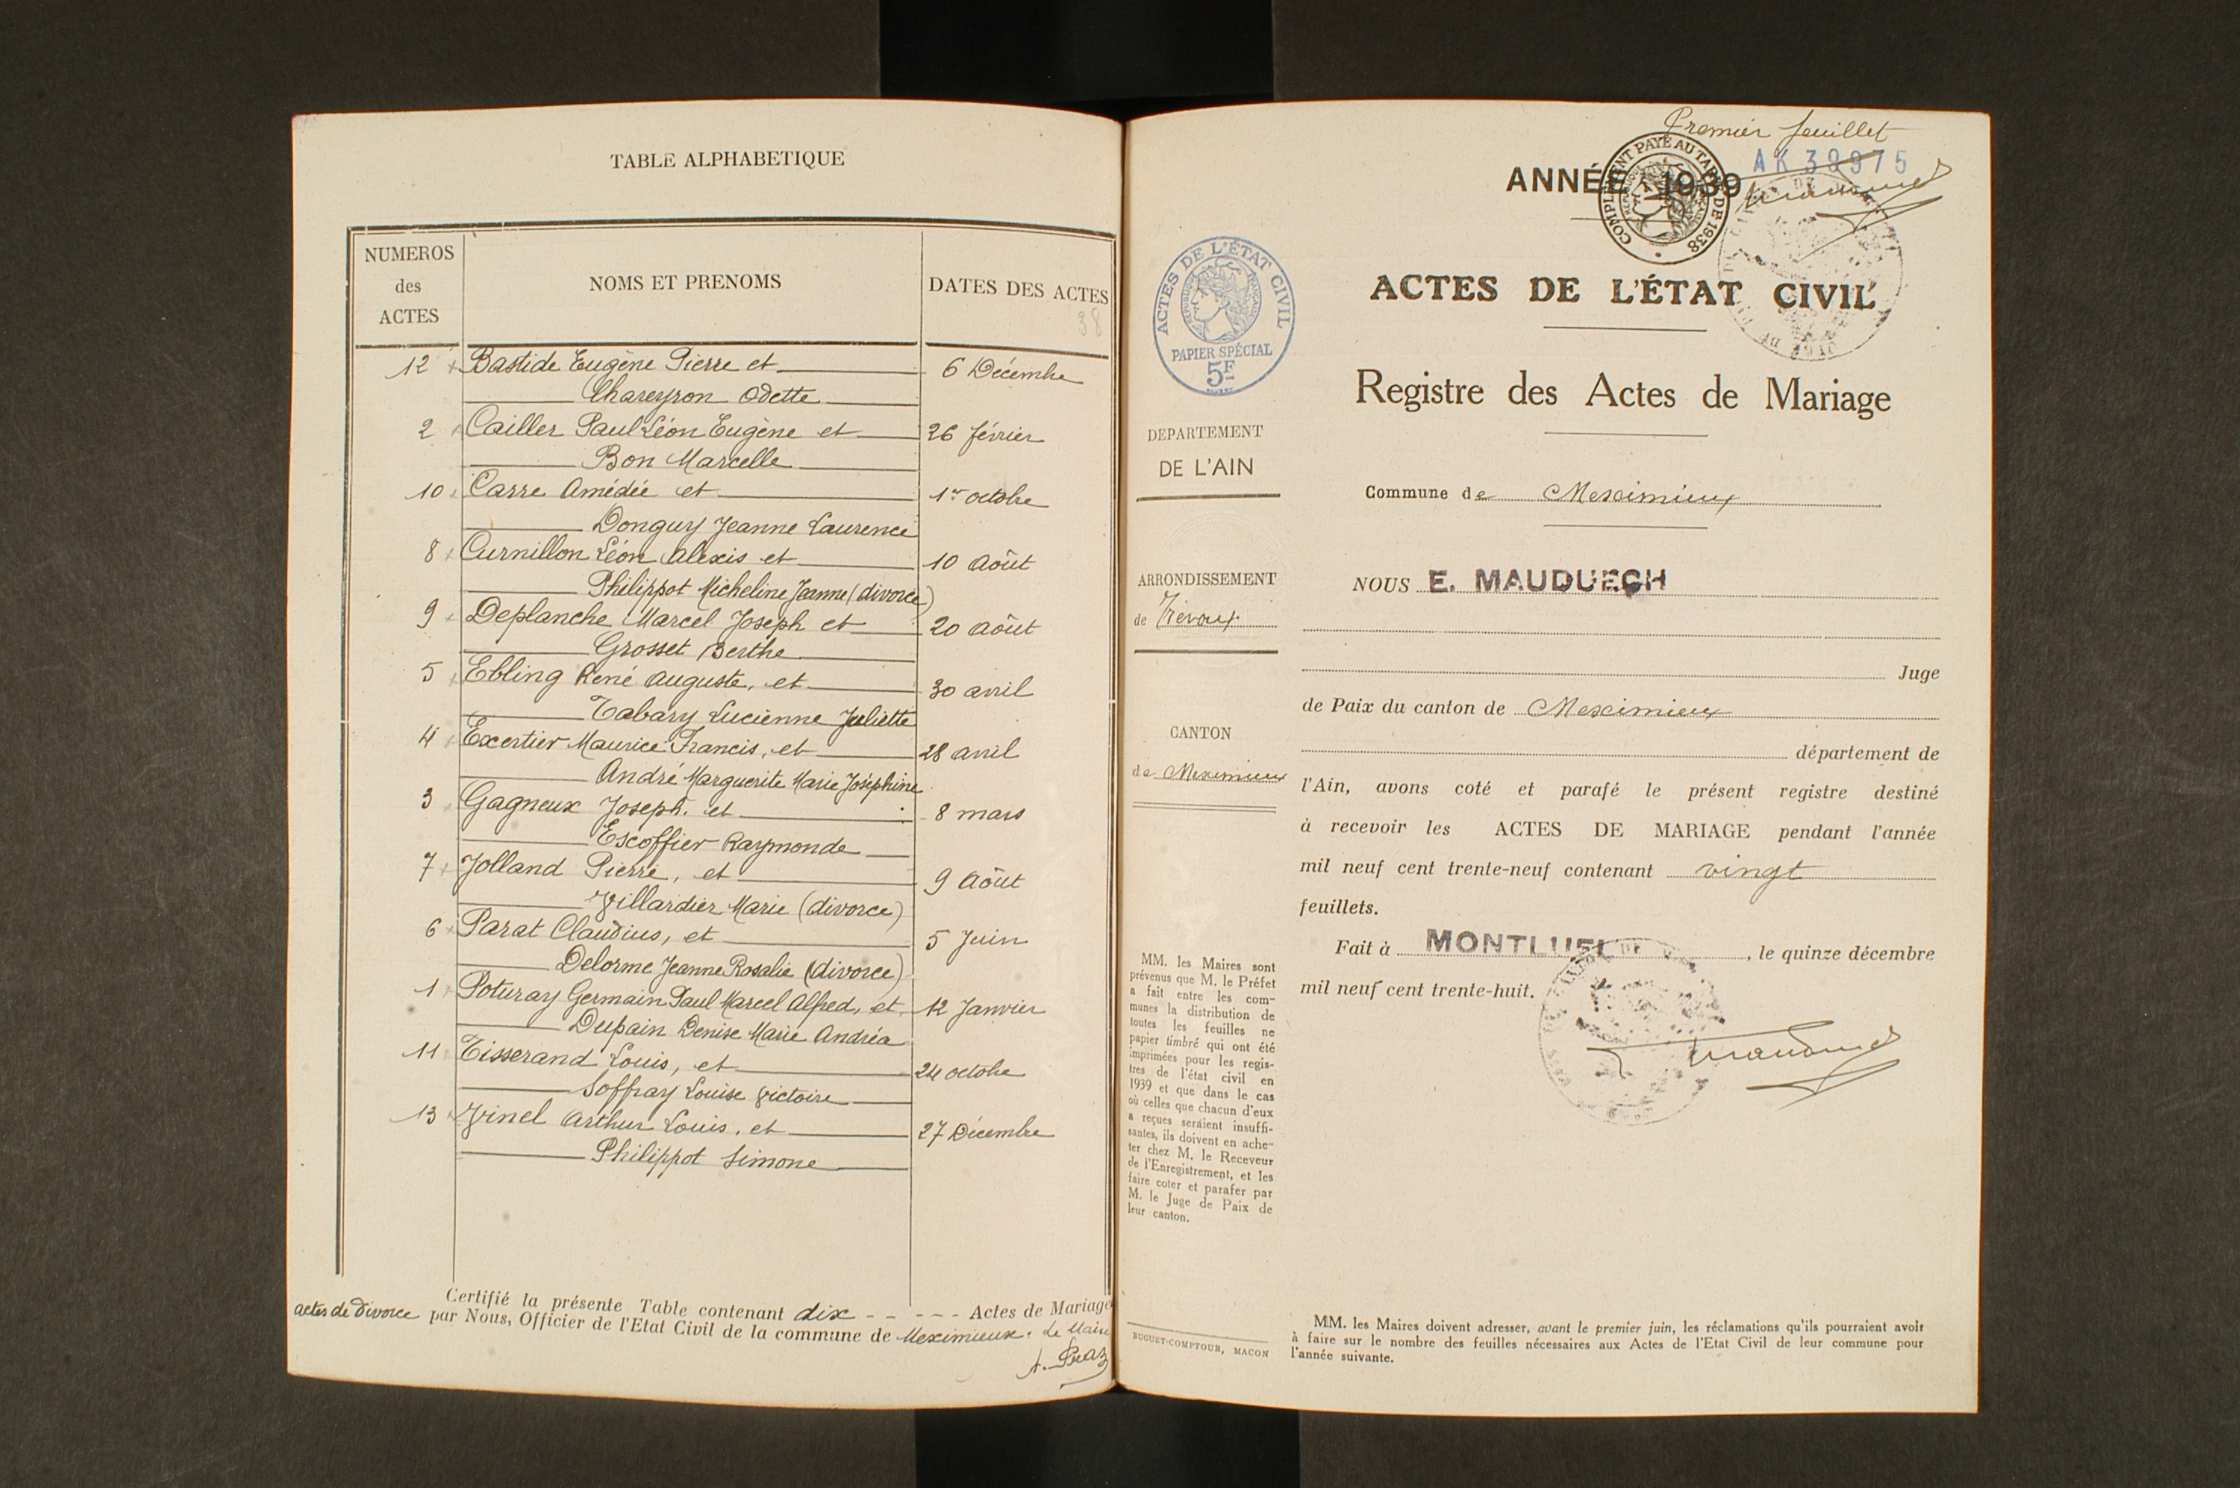 TABLE ALPHABETIQUE
NUMEROS
des
ACTES
NOMS ET PRENOMS
DATES DES ACTES
38
12 Bastide Eugène Pierre et 6 Décembre
Chareyron Odette
2 Cailler Paul Léon Eugène et 26 février
Bon Marcelle
10 Carre Amédée et 1er octobre
Donguy Jeanne Laurence
8 Curnillon Léon Alexis et 10 Août
Philippot Micheline Jeanne (divorce)
9 Deplanche Marcel Joseph et 20 Août
Grosset Berthe
5 Ebling René Auguste, et 30 avril
Tabary Lucienne Juliette
4 Excertier Maurice Francis, et 28 avril
André Marguerite Marie Joséphine
3 Gagneux Joseph. et 8 mars
Escoffier Raymonde
7 Jolland Pierre, et 9 Août
Villardier Marie (divorce)
6 Parat Claudius, et 5 Juin
Delorme Jeanne Rosalie (divorce)
1 Poturay Germain Paul Marcel Alfred, et 12 Janvier
Dupain Denise Marie Andréa
11 Tisserand Louis, et 24 octobre
Soffray Louise Victoire
13 Vinel Arthur Louis, et 27 Décembre
Philippot Simone
Certifié la présente Table contenant dix - - - - - Actes de Mariage
actes de divorce par Nous, Officier de l'Etat Civil de la commune de Meximieux. Le Maire
Premier feuillet
AK 39975
ANNÉE 1939
COMPLEMENT PAYÉ AU TARIF DE 1938
ACTES DE L'ÉTAT CIVIL
PAPIER SPÉCIAL
5F
ACTES DE L'ÉTAT CIVIL
Registre des Actes de Mariage
DEPARTEMENT
DE L'AIN
Commune de Meximieux
ARRONDISSEMENT
de Trévoux
CANTON
de Meximieux
NOUS E. MAUDUECH
Juge
de Paix du canton de Meximieux
département de
l'Ain, avons coté et parafé le présent registre destiné
à recevoir les ACTES DE MARIAGE pendant l'année
mil neuf cent trente-neuf contenant vingt
feuillets.
Fait à MONTLUEL, le quinze décembre
mil neuf cent trente-huit.
MM. les Maires sont
prévenus que M. le Préfet
a fait entre les com-
munes la distribution de
toutes les feuilles ne
papier timbré qui ont été
imprimées pour les regis-
tres de l'état civil en
1939 et que dans le cas
où celles que chacun d'eux
a reçues seraient insuffi-
santes, ils doivent en ache-
ter chez M. le Receveur
de l'Enregistrement, et les
faire coter et parafer par
M. le Juge de Paix de
leur canton.
BUGUET-COMPTOUR, MACON
MM. les Maires doivent adresser, avant le premier juin, les réclamations qu'ils pourraient avoir
à faire sur le nombre des feuilles nécessaires aux Actes de l'Etat Civil de leur commune pour
l'année suivante.